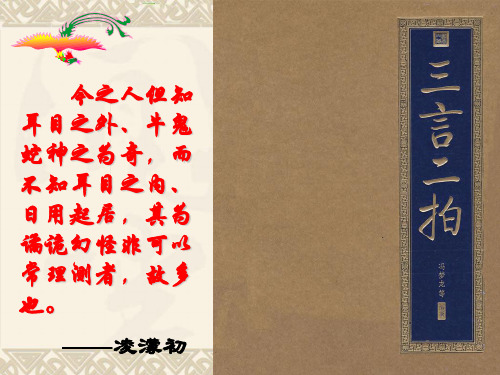 今之人但知
耳目之外、牛鬼
蛇神之为奇，而
不知耳目之内、
日用起居，其为
谲诡幻怪非可以
常理测者，故多
也。
——凌濛初
三言二拍
冯梦龙等